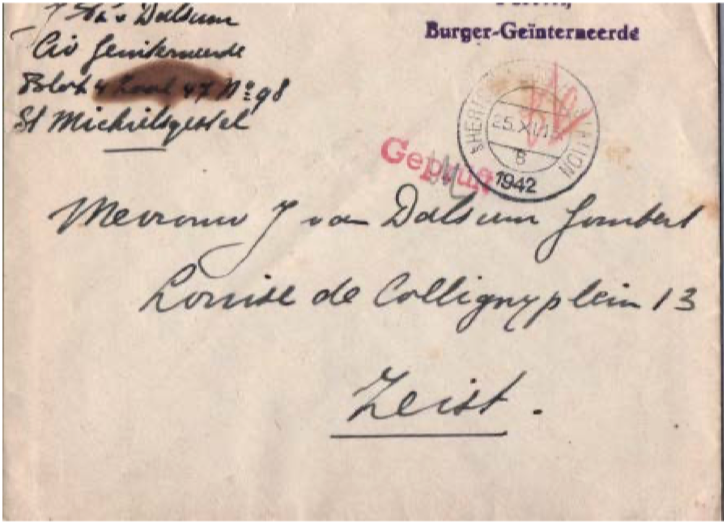 v Dalsum
Civ Geinterneerde
Blok 4 Zaal 47 No 98
St Michielsgestel
Burger-Geïnterneerde
25.XI
8
1942
STATION
Geprüft
Mevrouw J van Dalsum Gombert
Louise de Collignyplein 13
Zeist.